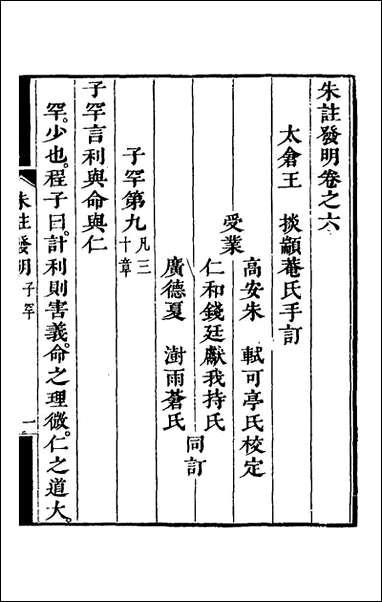 朱註發明卷之六
太倉王 掞顓菴氏手訂
高安朱 軾可亭氏校定
受業
仁和錢廷獻我持氏
廣德夏 澍雨蒼氏
同訂
子罕第九凡三十章
子罕言利與命與仁
罕。少也。程子曰。計利則害義。命之理微。仁之道大。
朱註發明 子罕 一